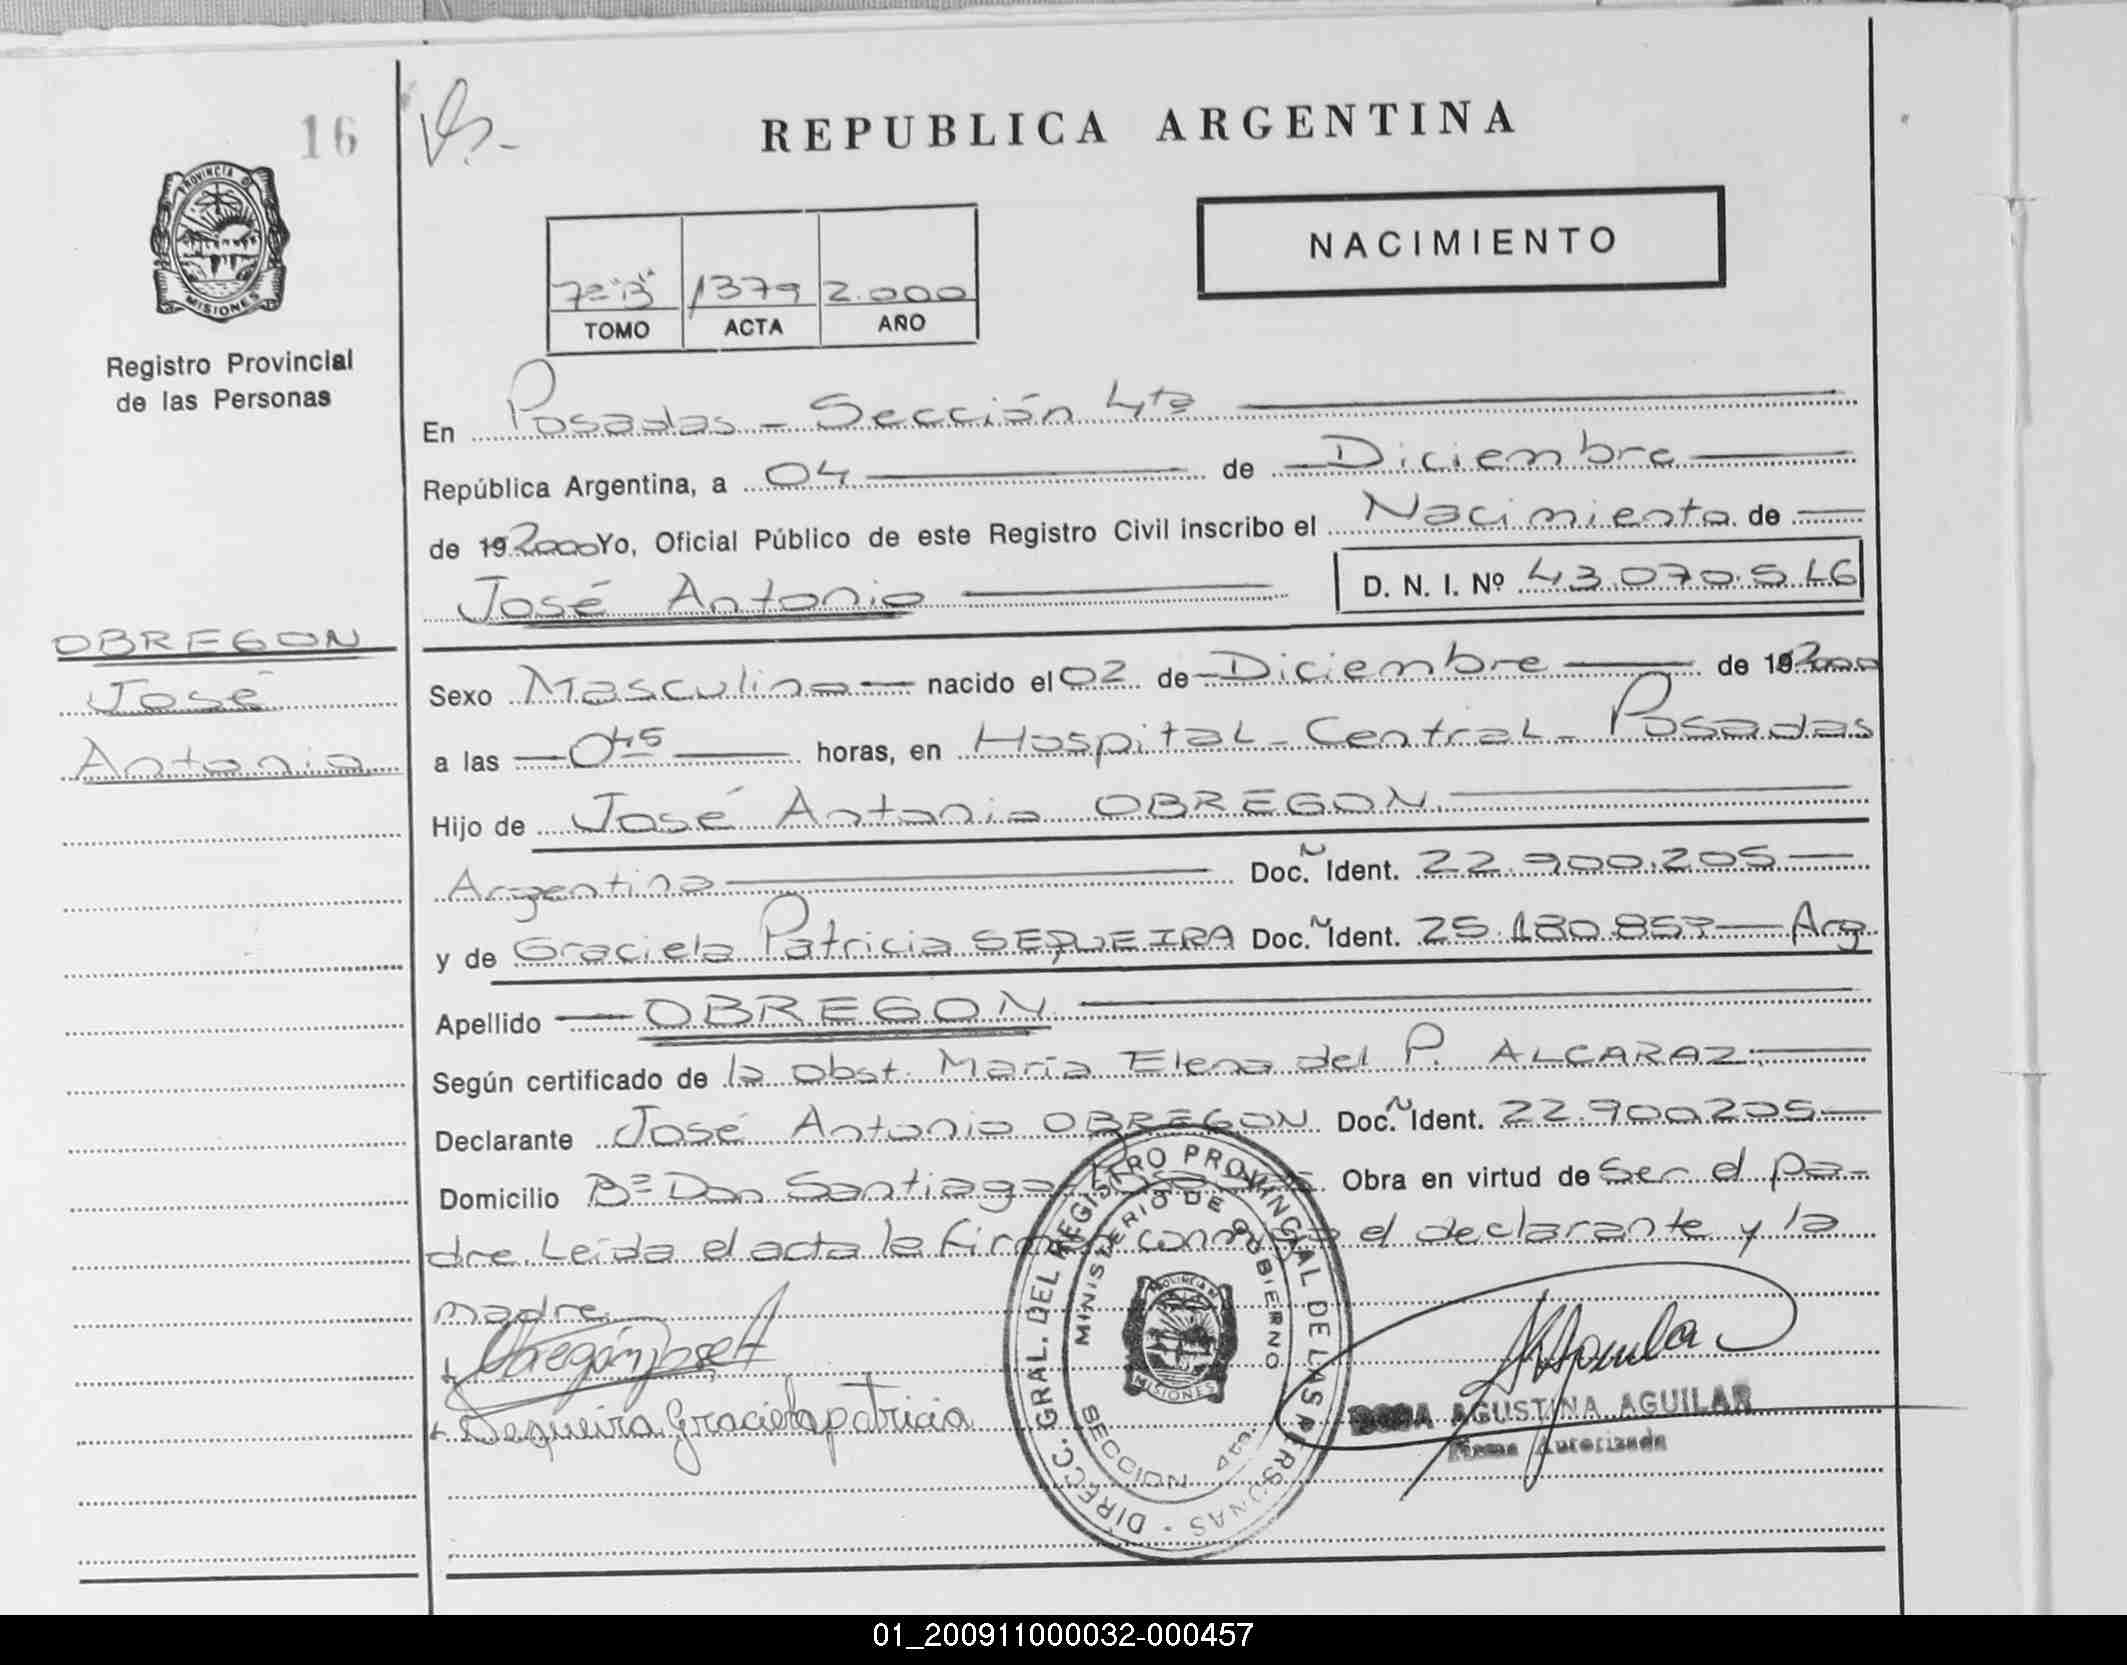 16
REPUBLICA ARGENTINA
PROVINCIA DE
MISIONES
Registro Provincial
de las Personas
NACIMIENTO
7º "B" 1379 2.000
TOMO ACTA AÑO
En Posadas - Sección 4ta
República Argentina, a 04 de Diciembre
de 19 2000 Yo, Oficial Público de este Registro Civil inscribo el Nacimiento de
José Antonio D. N. I. Nº 43.070.516
OBREGON
José
Antonio
Sexo Masculino nacido el 02 de Diciembre de 19 2000
a las 0 45 horas, en Hospital Central - Posadas
Hijo de José Antonio OBREGON
Argentino Doc. N Ident. 22.900.205
y de Graciela Patricia SEQUEIRA Doc. N Ident. 25.180.857 Arg.
Apellido OBREGON
Según certificado de la obst. María Elena del P. ALCARAZ.
Declarante José Antonio OBREGON Doc. N Ident. 22.900.205
Domicilio Bº Don Santiago Obra en virtud de ser el pa-
dre. Leída el acta la firman conmigo el declarante y la
madre.
Obregón José A
Sequeira Graciela patricia
DIRECC. GRAL. DEL REGISTRO PROVINCIAL DE LAS PERSONAS
MINISTERIO DE GOBIERNO
PROVINCIA DE
MISIONES
SECCION 4ta.
AGUSTINA AGUILAR
Firma Autorizada
01_200911000032-000457